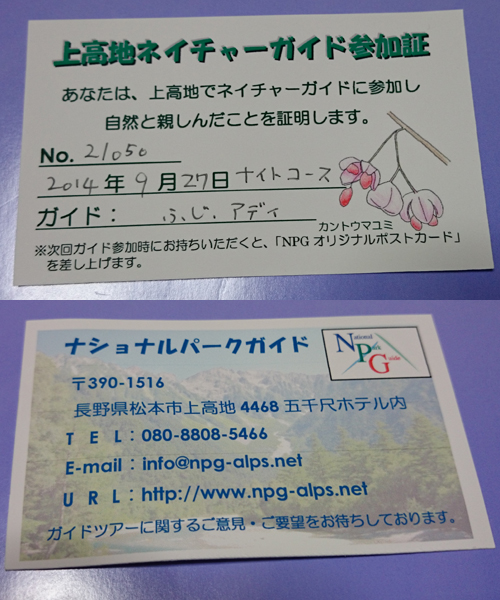 上高地ネイチャーガイド参加証
あなたは、上高地でネイチャーガイドに参加し
自然と親しんだことを証明します。
No. 21050
2014年 9月27日 ナイトコース
ガイド： ふじ. アディ
カントウマユミ
※次回ガイド参加時にお持ちいただくと、「NPG オリジナルポストカード」
を差し上げます。
ナショナルパークガイド
National
Park
Guide
〒390-1516
長野県松本市上高地 4468 五千尺ホテル内
TEL：080-8808-5466
E-mail：info@npg-alps.net
URL：http://www.npg-alps.net
ガイドツアーに関するご意見・ご要望をお待ちしております。